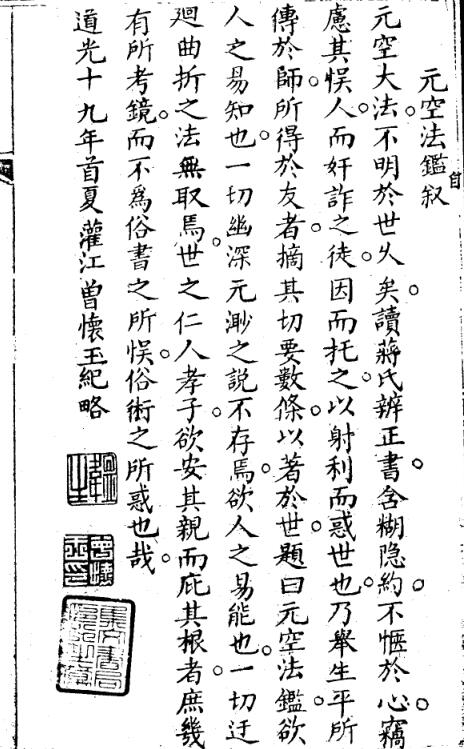 元空法鑑叙
自
元空大法不明於世久矣讀蔣氏辨正書含糊隐約不愜於心竊
慮其悮人而奸詐之徒因而托之以射利而惑世也乃舉生平所
傳於師所得於友者摘其切要數條以著於世題曰元空法鑑欲
人之易知也一切幽深元渺之説不存焉欲人之易能也一切迂
廻曲折之法無取焉世之仁人孝子欲安其親而庇其根者庶幾
有所考鏡而不爲俗書之所悮俗術之所惑也哉
道光十九年首夏灌江曾懷玉紀略